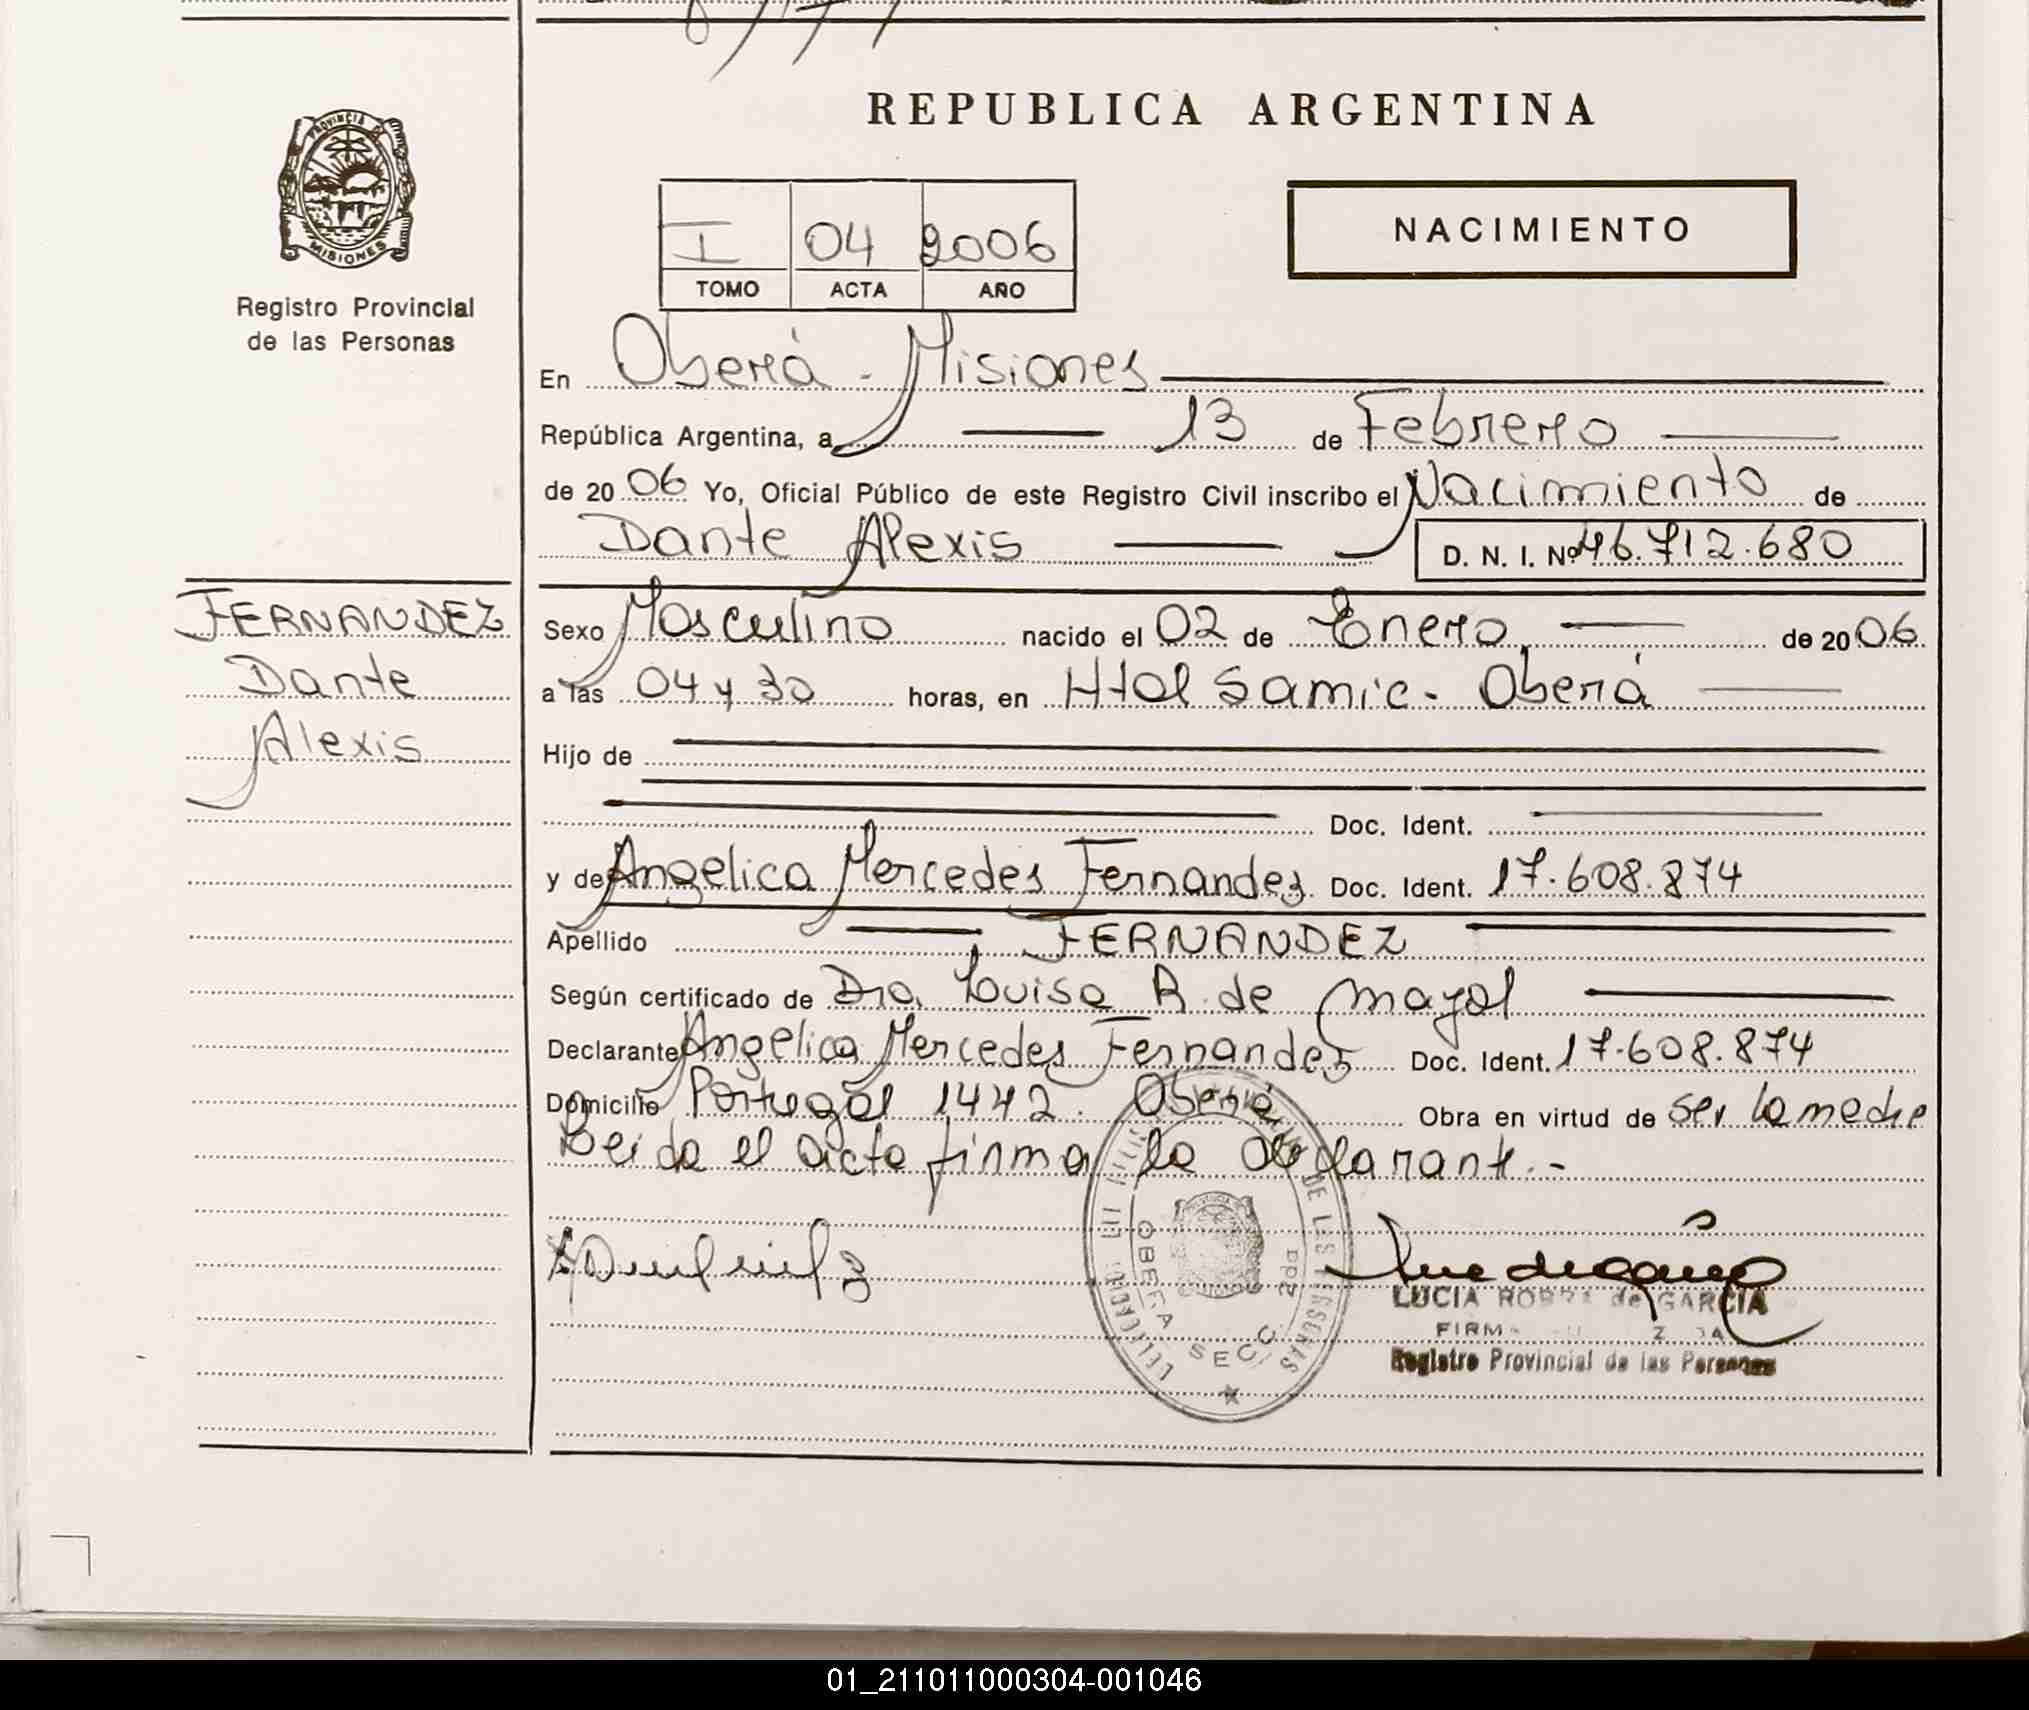 REPUBLICA ARGENTINA
PROVINCIA DE
MISIONES
Registro Provincial
de las Personas
I 04 2006
TOMO ACTA AÑO
NACIMIENTO
En Oberá - Misiones
República Argentina, a 13 de Febrero
de 2006 Yo, Oficial Público de este Registro Civil inscribo el Nacimiento de
Dante Alexis D. N. I. Nº 46.712.680
FERNANDEZ
Dante
Alexis
Sexo Masculino nacido el 02 de Enero de 2006
a las 04 y 30 horas, en Htal Samic - Oberá
Hijo de
Doc. Ident.
y de Angelica Mercedes Fernandez Doc. Ident. 17.608.874
Apellido FERNANDEZ
Según certificado de Dra. Louisa R. de Mayol
Declarante Angelica Mercedes Fernandez Doc. Ident. 17.608.874
Domicilio Portugal 1442. Oberá Obra en virtud de ser la madre
Leida el acta firma la declarante.-
DE LAS PERSONAS
OBERA SECC. 2da
LUCIA de GARCIA
FIRMA
Registro Provincial de las Personas
01_211011000304-001046